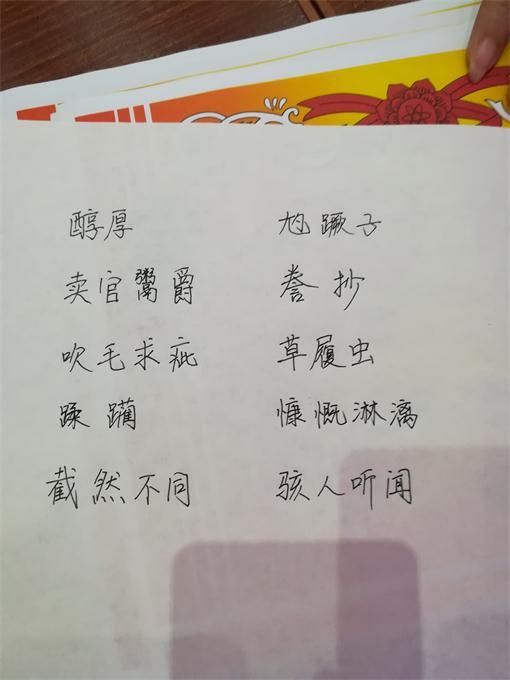 醇厚 尥蹶子
卖官鬻爵 誊抄
吹毛求疵 草履虫
蹂躏 慷慨淋漓
截然不同 骇人听闻